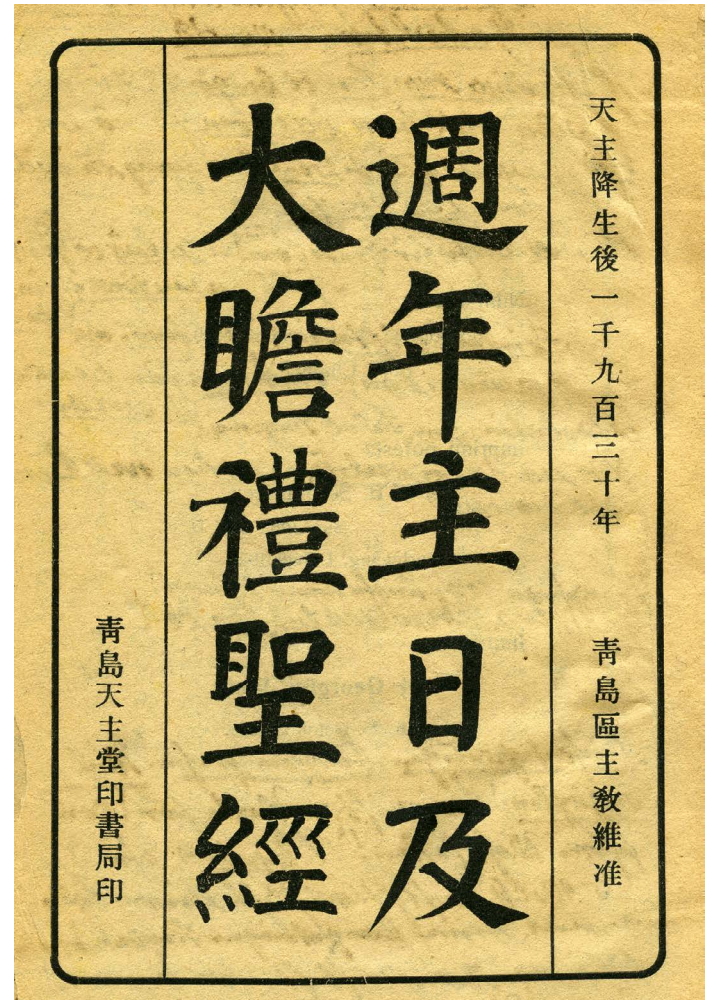 天主降生後一千九百三十年　青島區主敎維准
週年主日及
大瞻禮聖經
青島天主堂印書局印